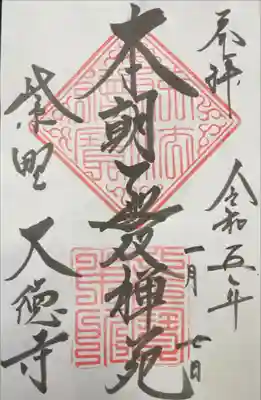 奉拝
令和五年
一月七日
本朝無雙禅苑
紫野 大徳寺